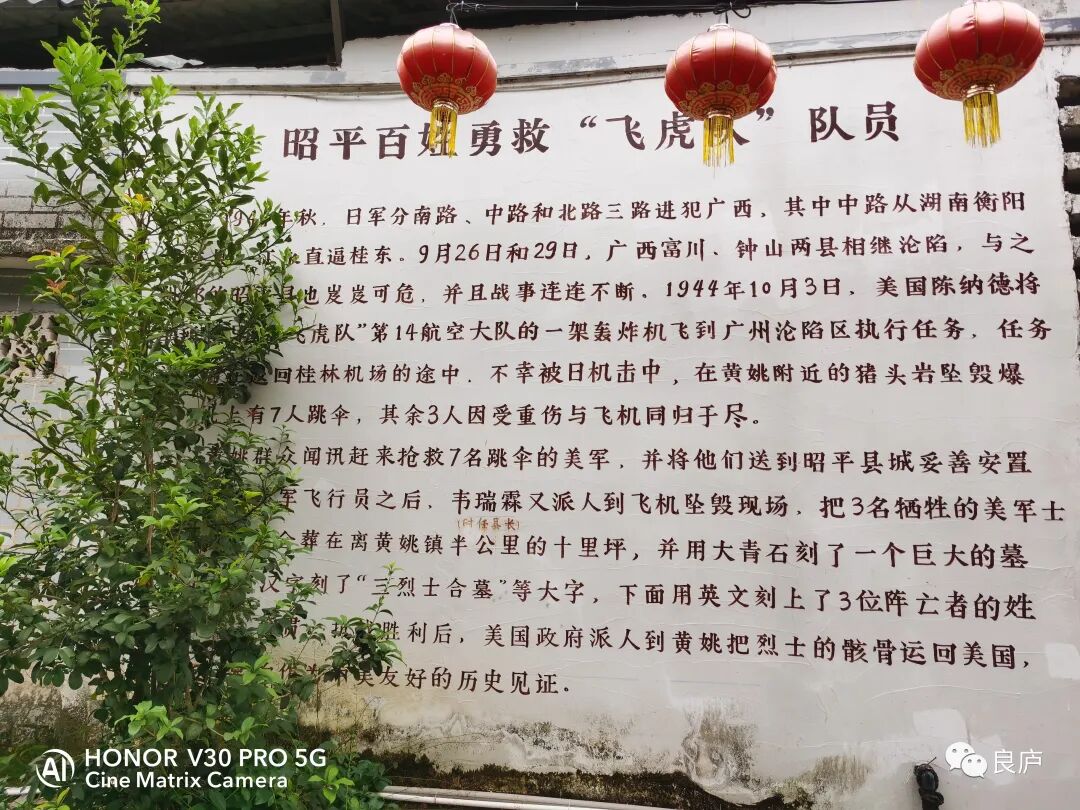 昭平百姓勇救“飞虎队”队员
年秋，日军分南路、中路和北路三路进犯广西，其中中路从湖南衡阳
直逼桂东。9月26日和29日，广西富川、钟山两县相继沦陷，与之
昭平县也岌岌可危，并且战事连连不断。1944年10月3日，美国陈纳德将
飞虎队”第14航空大队的一架轰炸机飞到广州沦陷区执行任务，任务
返回桂林机场的途中，不幸被日机击中，在黄姚附近的猪头岩坠毁爆
上有7人跳伞，其余3人因受重伤与飞机同归于尽。
黄姚群众闻讯赶来抢救7名跳伞的美军，并将他们送到昭平县城妥善安置
军飞行员之后，韦瑞霖又派人到飞机坠毁现场，把3名牺牲的美军士
(时任县长)
合葬在离黄姚镇半公里的十里坪，并用大青石刻了一个巨大的墓
汉字刻了“三烈士合墓”等大字，下面用英文刻上了3位阵亡者的姓
胜利后，美国政府派人到黄姚把烈士的骸骨运回美国，
友好的历史见证。
AI HONOR V30 PRO 5G
Cine Matrix Camera
良庐